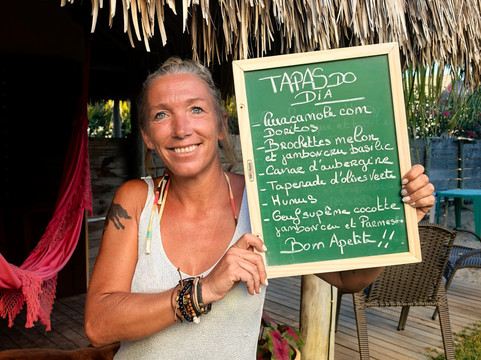 TAPAS DO
DIA
- Guacamole com
Doritos
- Brochettes melon
et jambon cru basilic
- Caviar d'aubergine
- Tapenade d'olives verte
- Humus
- Oeuf suprême cocotte
jambon cru et Parmes
Bom Apetite!!